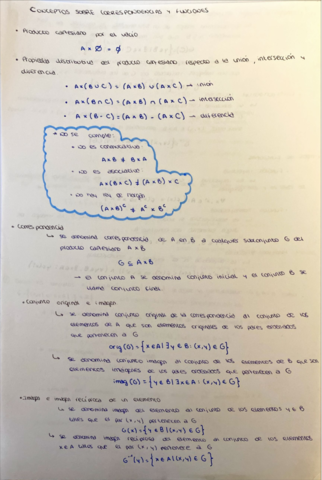 CONCEPTOS SOBRE CORRESPONDENCIAS Y FUNCIONES
• Producto cartesiano por el vacío
A × Ø = Ø
• Propiedad distributiva del producto cartesiano respecto a la unión, intersección y
diferencia
• A×(B∪C) = (A×B) ∪ (A×C) → unión
• A×(B∩C) = (A×B) ∩ (A×C) → intersección
• A×(B-C) = (A×B) - (A×C) → diferencia
• No se cumple:
- No es conmutativo
A×B ≠ B×A
- No es asociativo
A×(B×C) ≠ (A×B)×C
- No hay ley de Morgan
(A×B)ᶜ ≠ Aᶜ × Bᶜ
• Correspondencia
↳ Se denomina correspondencia de A en B a cualquier subconjunto G del
producto cartesiano A×B
G ⊆ A×B
→ el conjunto A se denomina conjunto inicial y el conjunto B se
llama conjunto final.
• Conjunto original e imagen
↳ Se denomina conjunto original de la correspondencia al conjunto de los
elementos de A que son elementos originales de los pares ordenados
que pertenecen a G
orig(G) = {x∈A | ∃y∈B: (x,y)∈G}
↳ Se denomina conjunto imagen al conjunto de los elementos de B que son
elementos imágenes de los pares ordenados que pertenecen a G
imag(G) = {y∈B | ∃x∈A: (x,y)∈G}
• Imagen e imagen recíproca de un elemento
↳ Se denomina imagen del elemento al conjunto de los elementos y∈B
tales que el par (x,y) pertenece a G
G(x) = {y∈B | (x,y)∈G}
↳ Se denomina imagen recíproca del elemento al conjunto de los elementos
x∈A tales que el par (x,y) pertenece a G
G⁻¹(y) = {x∈A | (x,y)∈G}